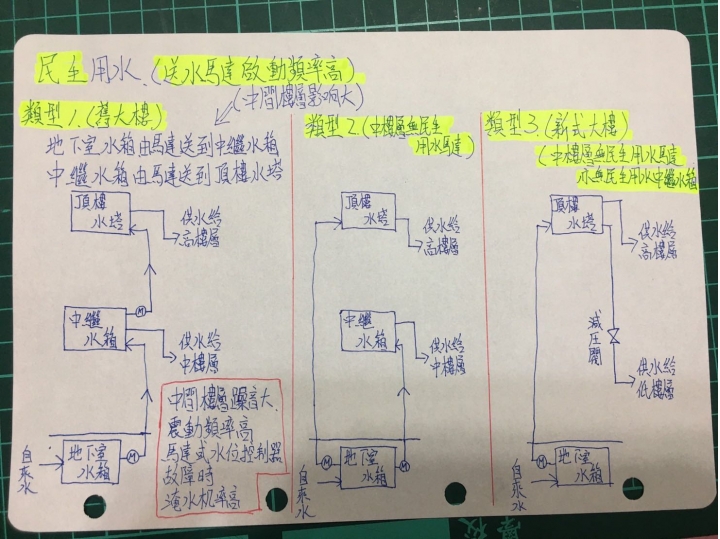 民生用水.(送水馬達啟動頻率高)
(中間樓層影响大)
類型1.(舊大樓)
地下室水箱由馬達送到中繼水箱
中繼水箱由馬達送到頂樓水塔
頂樓
水塔
供水給
高樓層
M
中繼
水箱
供水給
中樓層
自來水
地下室
水箱
M
中間樓層躁音大.
震動頻率高
馬達或水位控制器
故障時
淹水机率高
類型2.(中樓層無民生
用水馬達)
頂樓
水塔
供水給
高樓層
中繼
水箱
供水給
中樓層
自來水
M
地下室
水箱
M
類型3(新式大樓)
(中樓層無民生用水馬達
亦無民生用水中繼水箱
頂樓
水塔
供水給
高樓層
減压閥
供水給
低樓層
自來水
M
地下室
水箱
學校